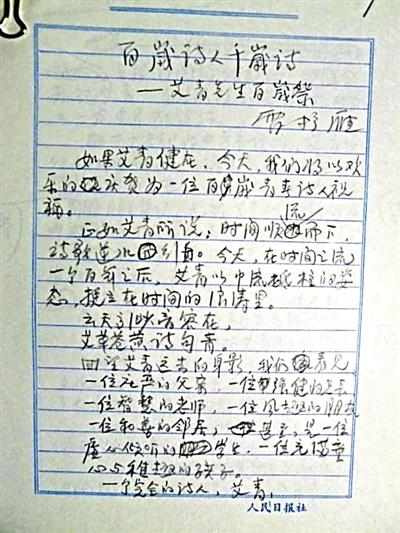 百岁诗人千岁诗
——艾青先生百岁祭
雷抒雁
如果艾青健在，今天，我们将以欢
乐的庆贺为一位百岁青年诗人祝
福。
正如艾青所说，时间顺流而下，
诗歌逆水而上。今天，在时间之流
一个百年之后，艾青以中流砥柱的姿
态，挺立在时间的浪涛里。
云天
音容在，
艾草苍黄诗句青。
回望艾青远去的身影，我们看见
一位庄严的父亲，一位坚强的兄长
一位智慧的老师，一位风趣的朋友
一位和善的邻居，甚至，是一位
虚心倾听的学生，一位充满童
心与稚趣的孩子。
一个完全的诗人，艾青，
人民日报社